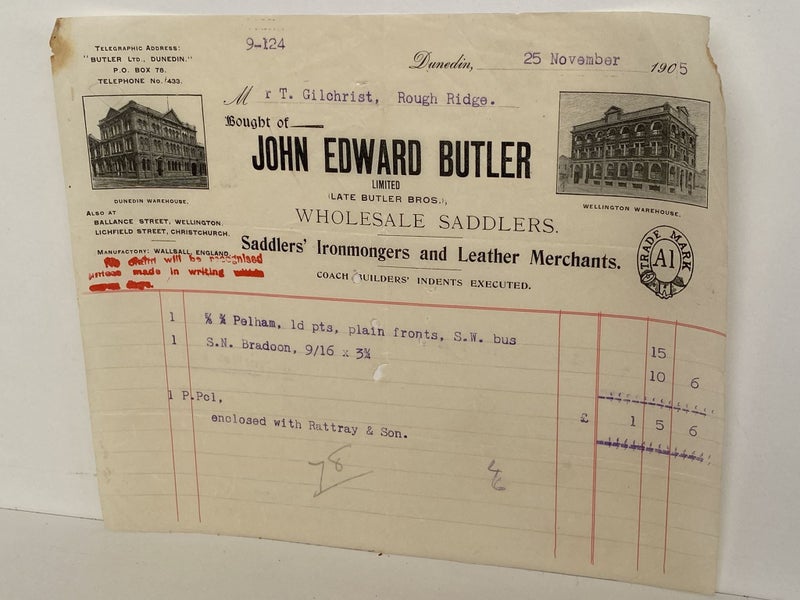 TELEGRAPHIC ADDRESS:
"BUTLER LTD., DUNEDIN."
P.O. BOX 78.
TELEPHONE No. 1433.
9-124
Dunedin, 25 November 1905
Mr T. Gilchrist, Rough Ridge.
Bought of
JOHN EDWARD BUTLER
LIMITED
(LATE BUTLER BROS.),
WHOLESALE SADDLERS.
Saddlers' Ironmongers and Leather Merchants.
COACH BUILDERS' INDENTS EXECUTED.
DUNEDIN WAREHOUSE.
WELLINGTON WAREHOUSE.
ALSO AT
BALLANCE STREET, WELLINGTON.
LICHFIELD STREET, CHRISTCHURCH.
MANUFACTORY: WALLSALL, ENGLAND.
No claim will be recognised
unless made in writing within
days.
TRADE MARK
A1
1 Pelham, 1d pts, plain fronts, S.W. bus 15
1 S.N. Bradoon, 9/16 x 3¾ 10 6
1 P.Pcl, £ 1 5 6
enclosed with Rattray & Son.
78